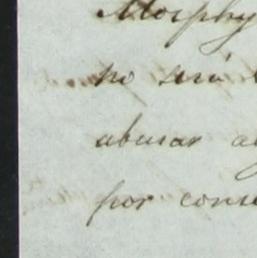 Morphy
no será
abusar
por cons